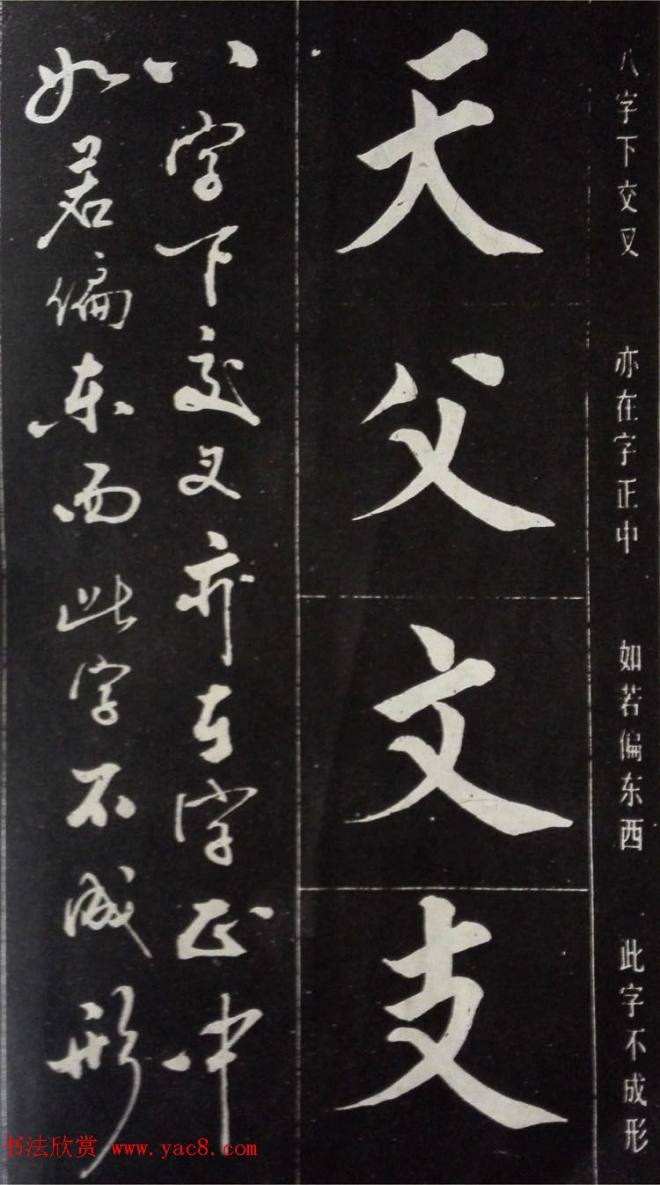 八字下交叉 亦在字正中 如若偏东西 此字不成形
天父文支
八字下交叉亦在字正中
如若偏东西此字不成形
书法欣赏 www.yac8.com